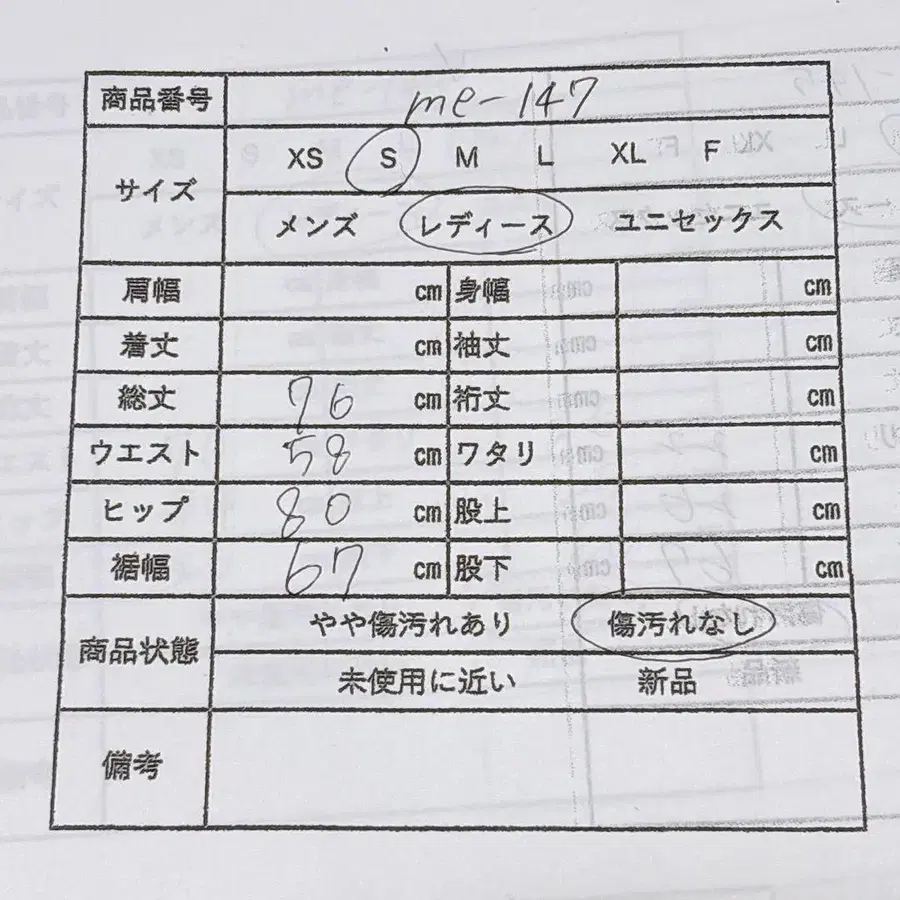 商品番号 me-147
サイズ XS S M L XL F
メンズ レディース ユニセックス
肩幅 cm 身幅 cm
着丈 cm 袖丈 cm
総丈 76 cm 裄丈 cm
ウエスト 58 cm ワタリ cm
ヒップ 80 cm 股上 cm
裾幅 67 cm 股下 cm
商品状態 やや傷汚れあり 傷汚れなし
未使用に近い 新品
備考